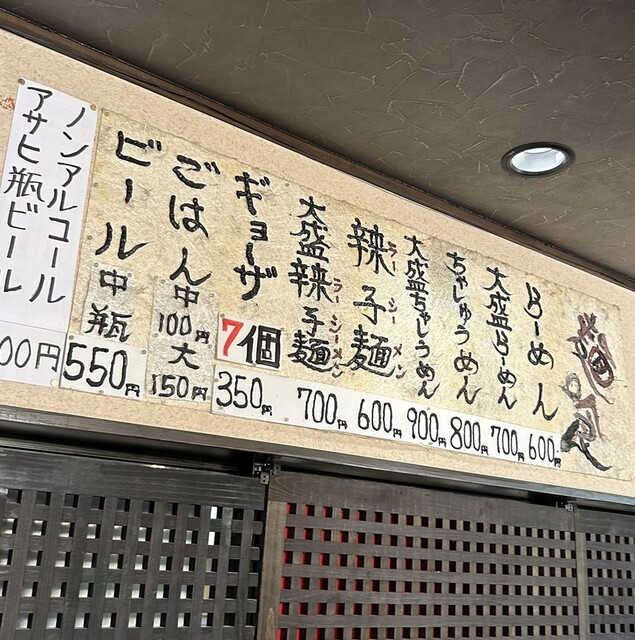 らーめん
600円
大盛らーめん
700円
ちゃしゅうめん
800円
大盛ちゃしゅうめん
900円
辣子麺
ラーシーメン
600円
大盛辣子麺
ラーシーメン
700円
ギョーザ
7個
350円
ごはん
中
100円
大
150円
ビール
中瓶
550円
ノンアルコール
アサヒ瓶ビール
00円